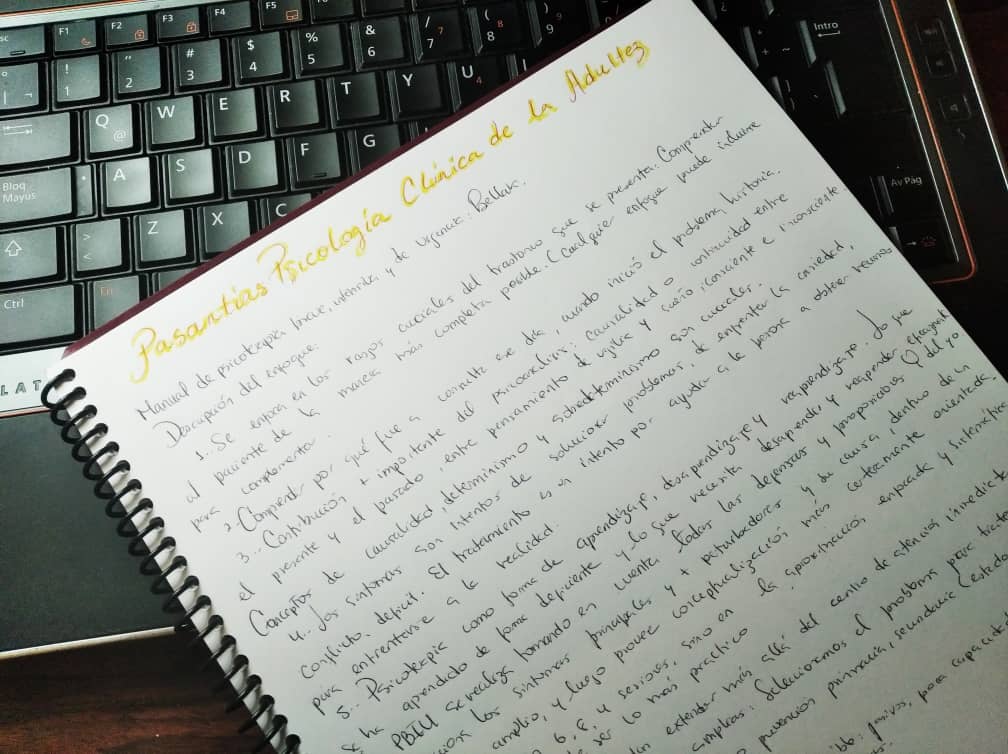 Pasantías Psicología Clínica de la Adultez
Manual de psicoterapia breve, intensiva y de urgencia: Bellak.
Descripción del enfoque:
1.. Se enfoca en los rasgos cruciales del trastorno que se presenta: Comprender
al paciente de la manera más completa posible. (Cualquier enfoque puede incluirse
para complementar.
2. Comprender por qué fue a consulta ese día, cuando inició el problema, historia.
3.. Contribución + importante del psicoanálisis: causalidad o continuidad entre
el presente y el pasado, entre pensamiento de vigilia y sueño, consciente e inconsciente.
Conceptos de causalidad, determinismo y sobredeterminismo son cruciales.
4.. Los síntomas son intentos de solucionar problemas, de enfrentar la ansiedad,
conflicto, déficit. El tratamiento es un intento por ayudar a la persona a obtener recursos
para enfrentarse a la realidad.
5.. Psicoterapia como forma de aprendizaje, desaprendizaje y reaprendizaje. Lo que
se ha aprendido de forma deficiente y lo que necesita desaprender y reaprender
PBIU se realiza tomando en cuenta todas las defensas y del yo
los síntomas principales y + perturbadores y su causa, dentro de la
amplio, y luego provee conceptualización más certeramente orientada.
6, 8, 4 sesiones, sino en la aproximación enfocada y sistemática
ser lo más práctico
extender más allá del centro de atención inmediato
Seleccionamos el problema para tratar
prevención primaria, secundaria
capacidad
esc
F1
F2
F3
F4
F5
! 1
" 2
# 3
$ 4
% 5
& 6
/ 7 7
( 8 8
) 9 9
Intro
Q @
W
E
R
T
Y
U 4
Bloq Mayús
A
S
D
F
G
Z
X
C
< >
Ctrl
Fn
Av Pág
LAT